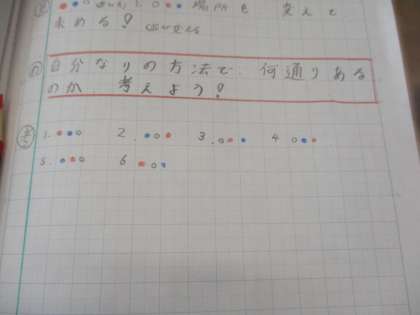 場所を 変えて
求める!
自分なりの方法で、何通りある
のか、考えよう!
1. 2. 3. 4
5. 6